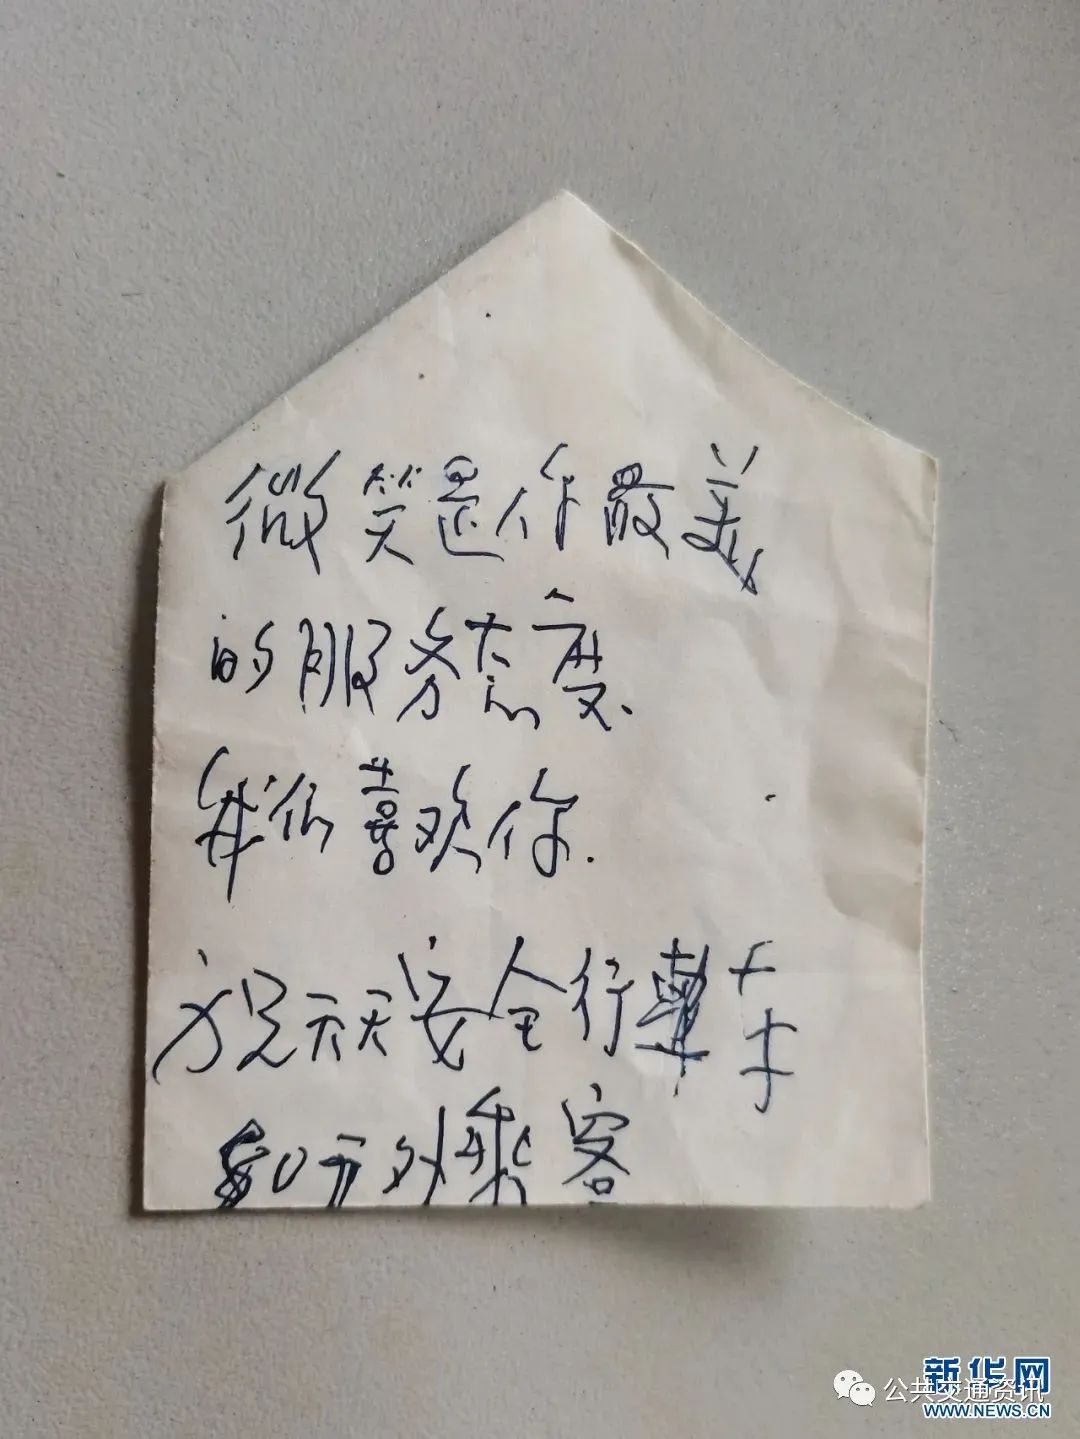 微笑是你最美
的服务态度.
我们喜欢你.
祝天天安全行車车
80开外乘客
新华网
公共交通资讯
WWW.NEWS.CN